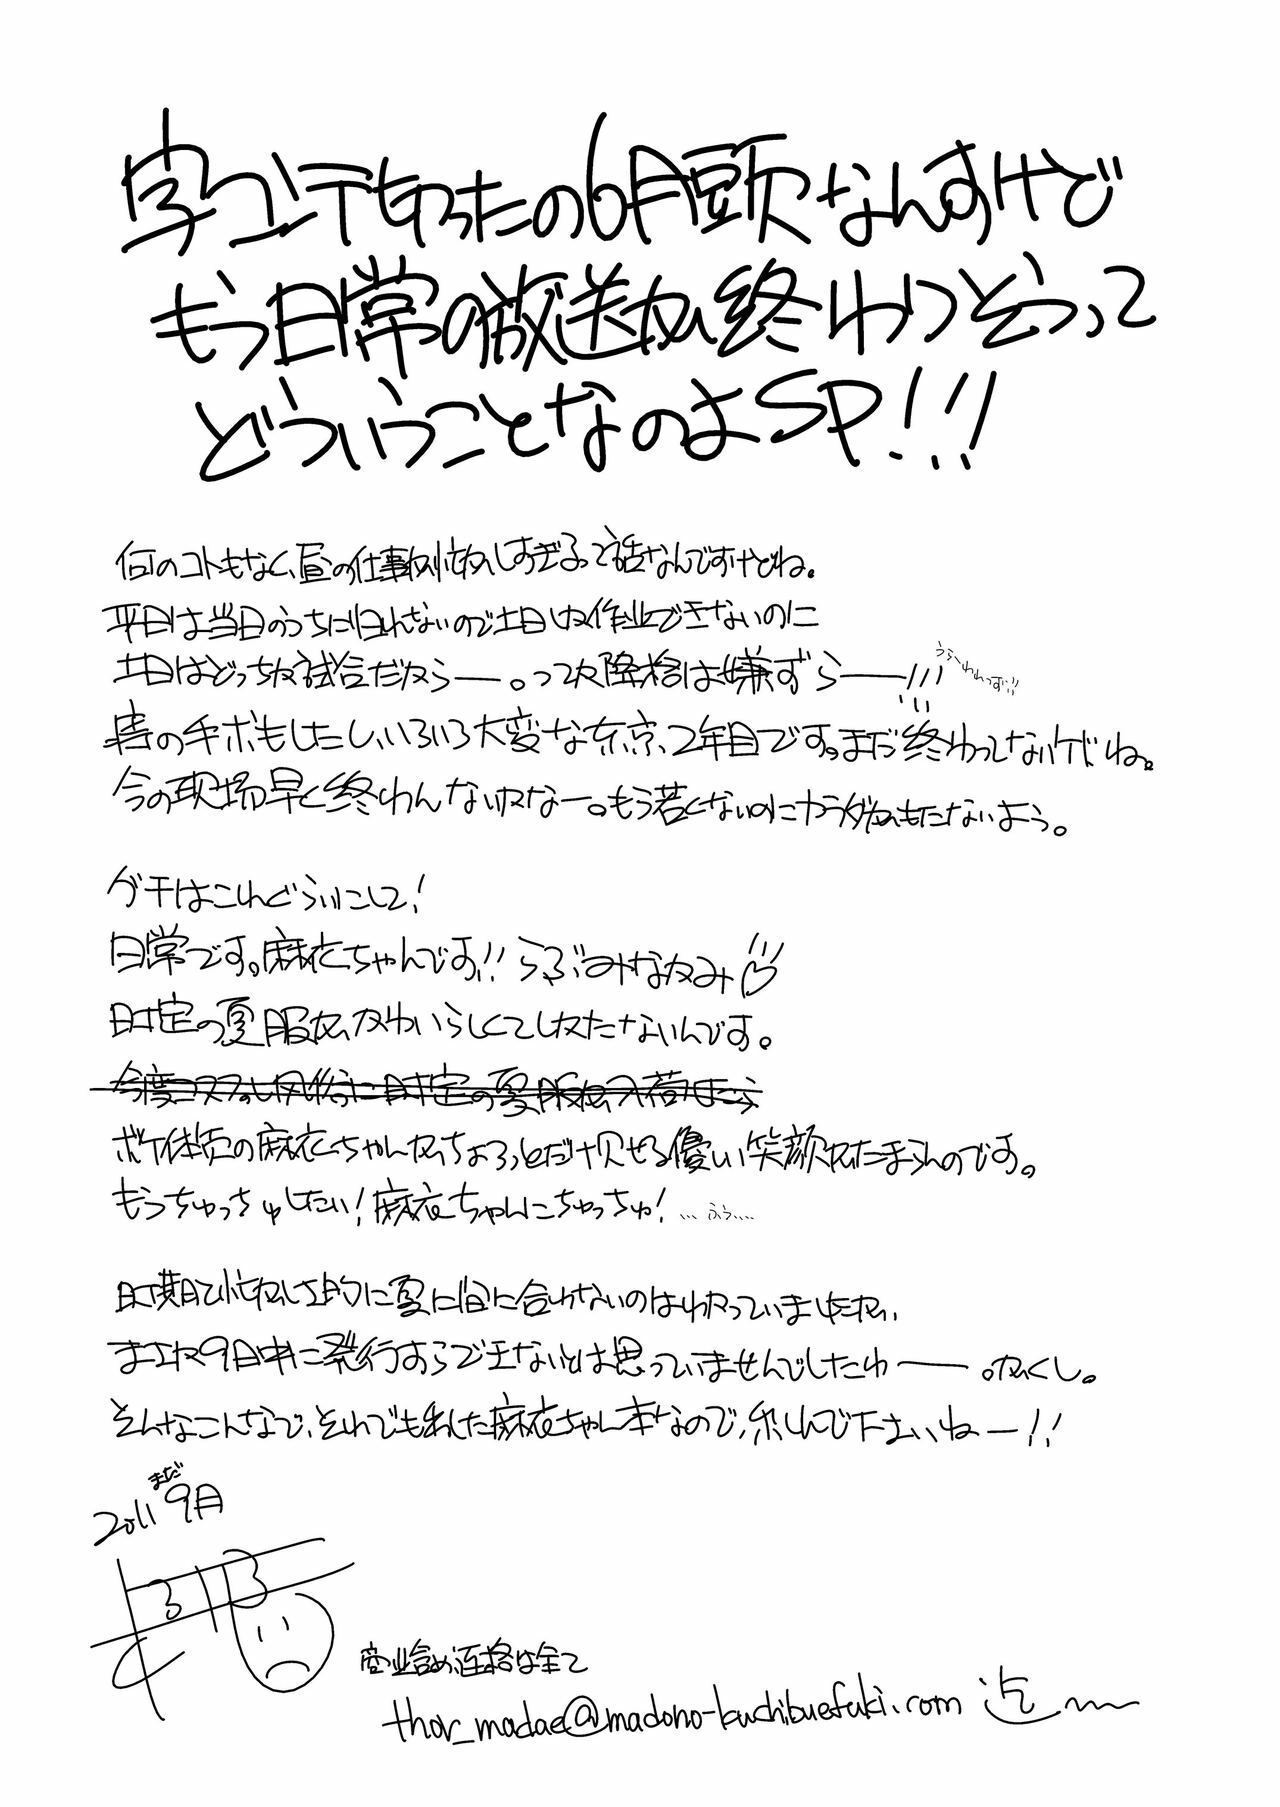 字コンテ切ったの6月頭なんすけど
もう日常の放送が終わりそうって
どういうことなのよSP!!!
何のコトもなく、昼の仕事が忙しすぎるって話なんですけどね。
平日は当日のうちに帰れないので土日しか作業できないのに
土日はどっちか試合だからー。ってか降格は嫌ずらー!!!
うらーわれっず!!
時の手ボもしたし、いろいろ大変な東京2年目です。まだ終わってないケドね。
今の現場早く終わんないかなー。もう若くないのにカラダがもたないよう。
グチはこれぐらいにして!
日常です。麻衣ちゃんです!! らぶみなかみ♡
時定の夏服がかわいらしくてしかたないんです。
今度コスプレ風俗に時定の夏服が入荷したら
ボケ体質の麻衣ちゃんがちょろっとだけ見せる優しい笑顔がたまらんのです。
もうちゅっちゅしたい!麻衣ちゃんにちゅっちゅ! …ふぅ…
時期と忙しさ的に夏に間に合わないのはわかっていましたが、
まさか9月中に発行すらできないとは思っていませんでしたわー。がくし。
そんなこんなで、それでも出した麻衣ちゃん本なので、楽しんで下さいねー!!
2011 まだ9月
商業含め連絡は全て
thor_madae@madono-kuchibuefuki.com 迄〜